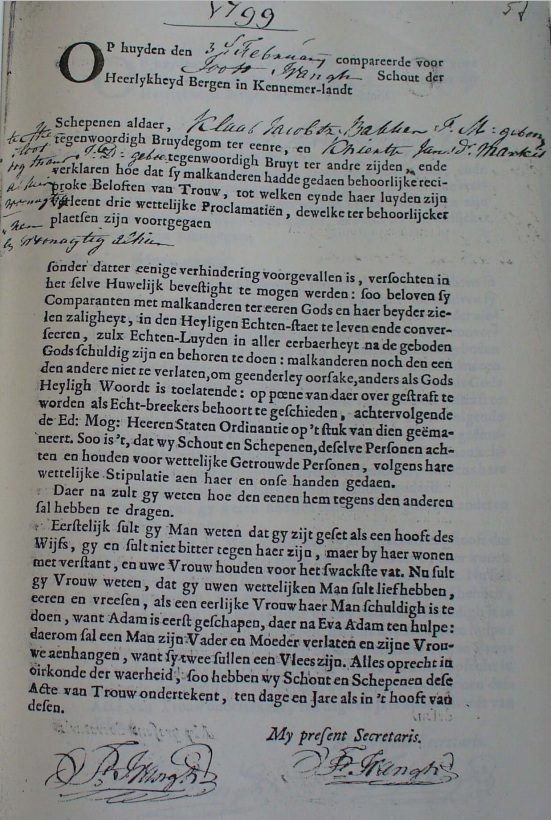 1799
OP huyden den 3 February compareerde voor
Joost Krengh Schout der
Heerlykheyd Bergen in Kennemer-landt
Schepenen aldaer, Klaas Jacobsz Bakker J. M: geboren
tegenwoordigh Bruydegom ter eenre, en Jans dr.
J: D: gebo: tegenwoordigh Bruyt ter andre zijden, ende
verklaren hoe dat sy malkanderen hadde gedaen behoorlijke reci-
proke Beloften van Trouw, tot welken eynde haer luyden zijn
verleent drie wettelijke Proclamatiën, dewelke ter behoorlijcker
plaetsen zijn voortgegaen
sonder datter eenige verhindering voorgevallen is, versochten in
het selve Huwelijk bevestight te mogen werden: soo beloven sy
Comparanten met malkanderen ter eeren Gods en haer beyder zie-
len zaligheyt, in den Heyligen Echten-staet te leven ende conver-
seeren, zulx Echten-Luyden in aller eerbaerheyt na de geboden
Gods schuldig zijn en behoren te doen: malkanderen noch den een
den andere niet te verlaten, om geenderley oorsake, anders als Gods
Heyligh Woordt is toelatende: op pœne van daer over gestraft te
worden als Echt-breekers behoort te geschieden, achtervolgende
de Ed: Mog: Heeren Staten Ordinantie op 't stuk van dien geëma-
neert. Soo is 't, dat wy Schout en Schepenen, deselve Personen ach-
ten en houden voor wettelijke Getrouwde Personen, volgens hare
wettelijke Stipulatie aen haer en onse handen gedaen.
Daer na zult gy weten hoe den eenen hem tegens den anderen
sal hebben te dragen.
Eerstelijk sult gy Man weten dat gy zijt geset als een hooft des
Wijfs, gy en sult niet bitter tegen haer zijn, maer by haer wonen
met verstant, en uwe Vrouw houden voor het swackste vat. Nu sult
gy Vrouw weten, dat gy uwen wettelijken Man sult lief hebben,
eeren en vreesen, als een eerlijke Vrouw haer Man schuldigh is te
doen, want Adam is eerst geschapen, daer na Eva Adam ten hulpe:
daerom sal een Man zijn Vader en Moeder verlaten en zijne Vrou-
we aenhangen, want sy twee sullen een Vlees zijn. Alles oprecht in
oirkonde der waerheid, soo hebben wy Schout en Schepenen dese
Acte van Trouw ondertekent, ten dage en Jare als in 't hooft van
desen.
My present Secretaris.